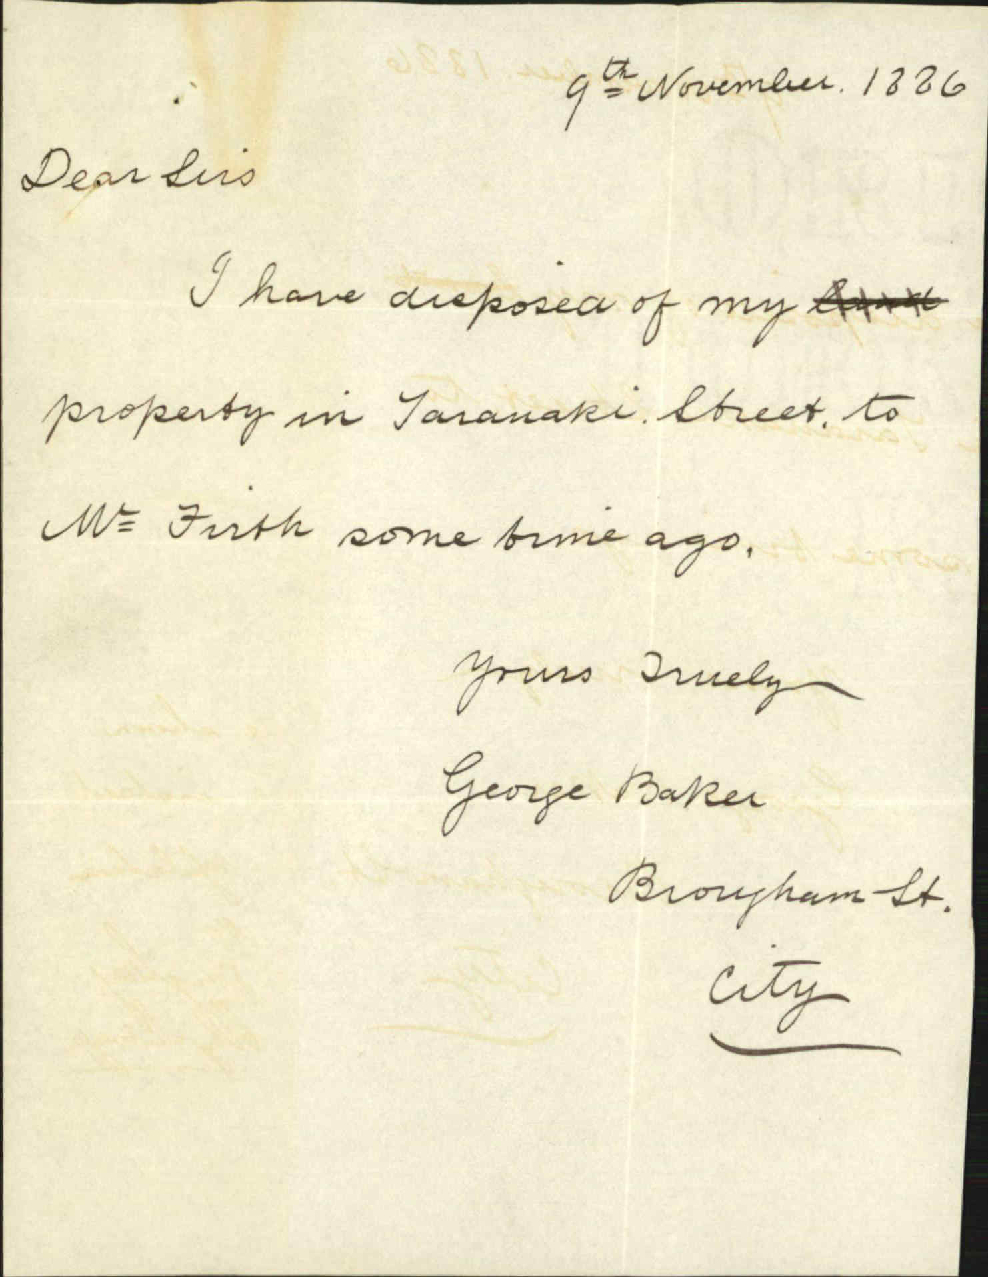 9th November. 1886
Dear Sirs
I have disposed of my
property in Taranaki. Street. to
Mr Firth some time ago.
Yours Truely
George Baker
Brougham St.
City